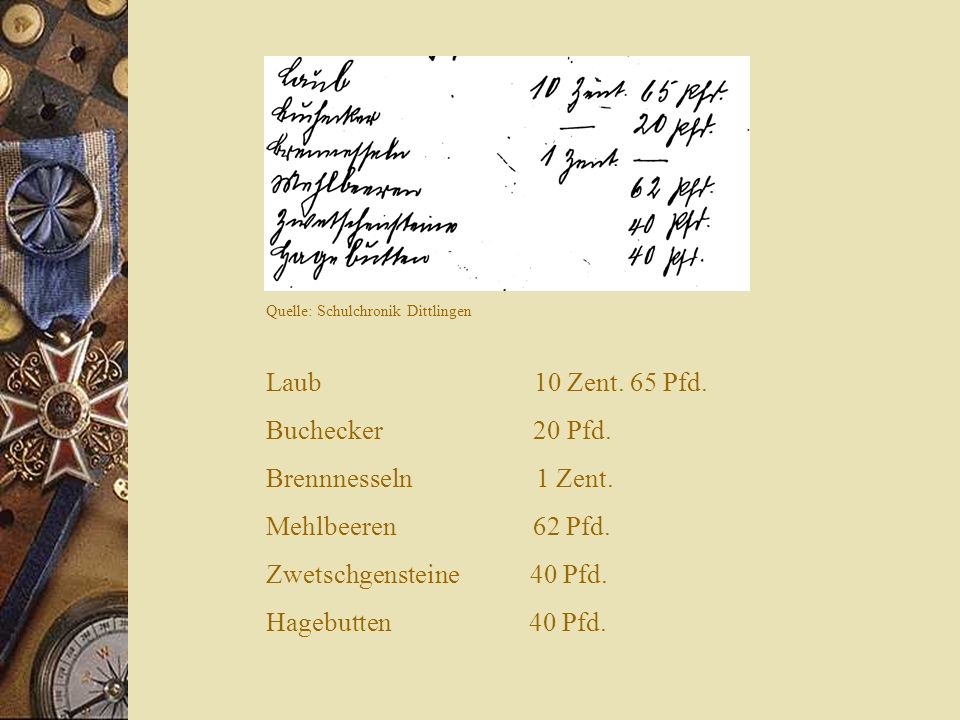 Laub 10 Zent. 65 Pfd.
Buchecker — 20 Pfd.
Brennesseln 1 Zent. —
Mehlbeeren 62 Pfd.
Zwetschensteine 40 Pfd.
Hagebutten 40 Pfd.
Quelle: Schulchronik Dittlingen
Laub 10 Zent. 65 Pfd.
Buchecker 20 Pfd.
Brennnesseln 1 Zent.
Mehlbeeren 62 Pfd.
Zwetschgensteine 40 Pfd.
Hagebutten 40 Pfd.